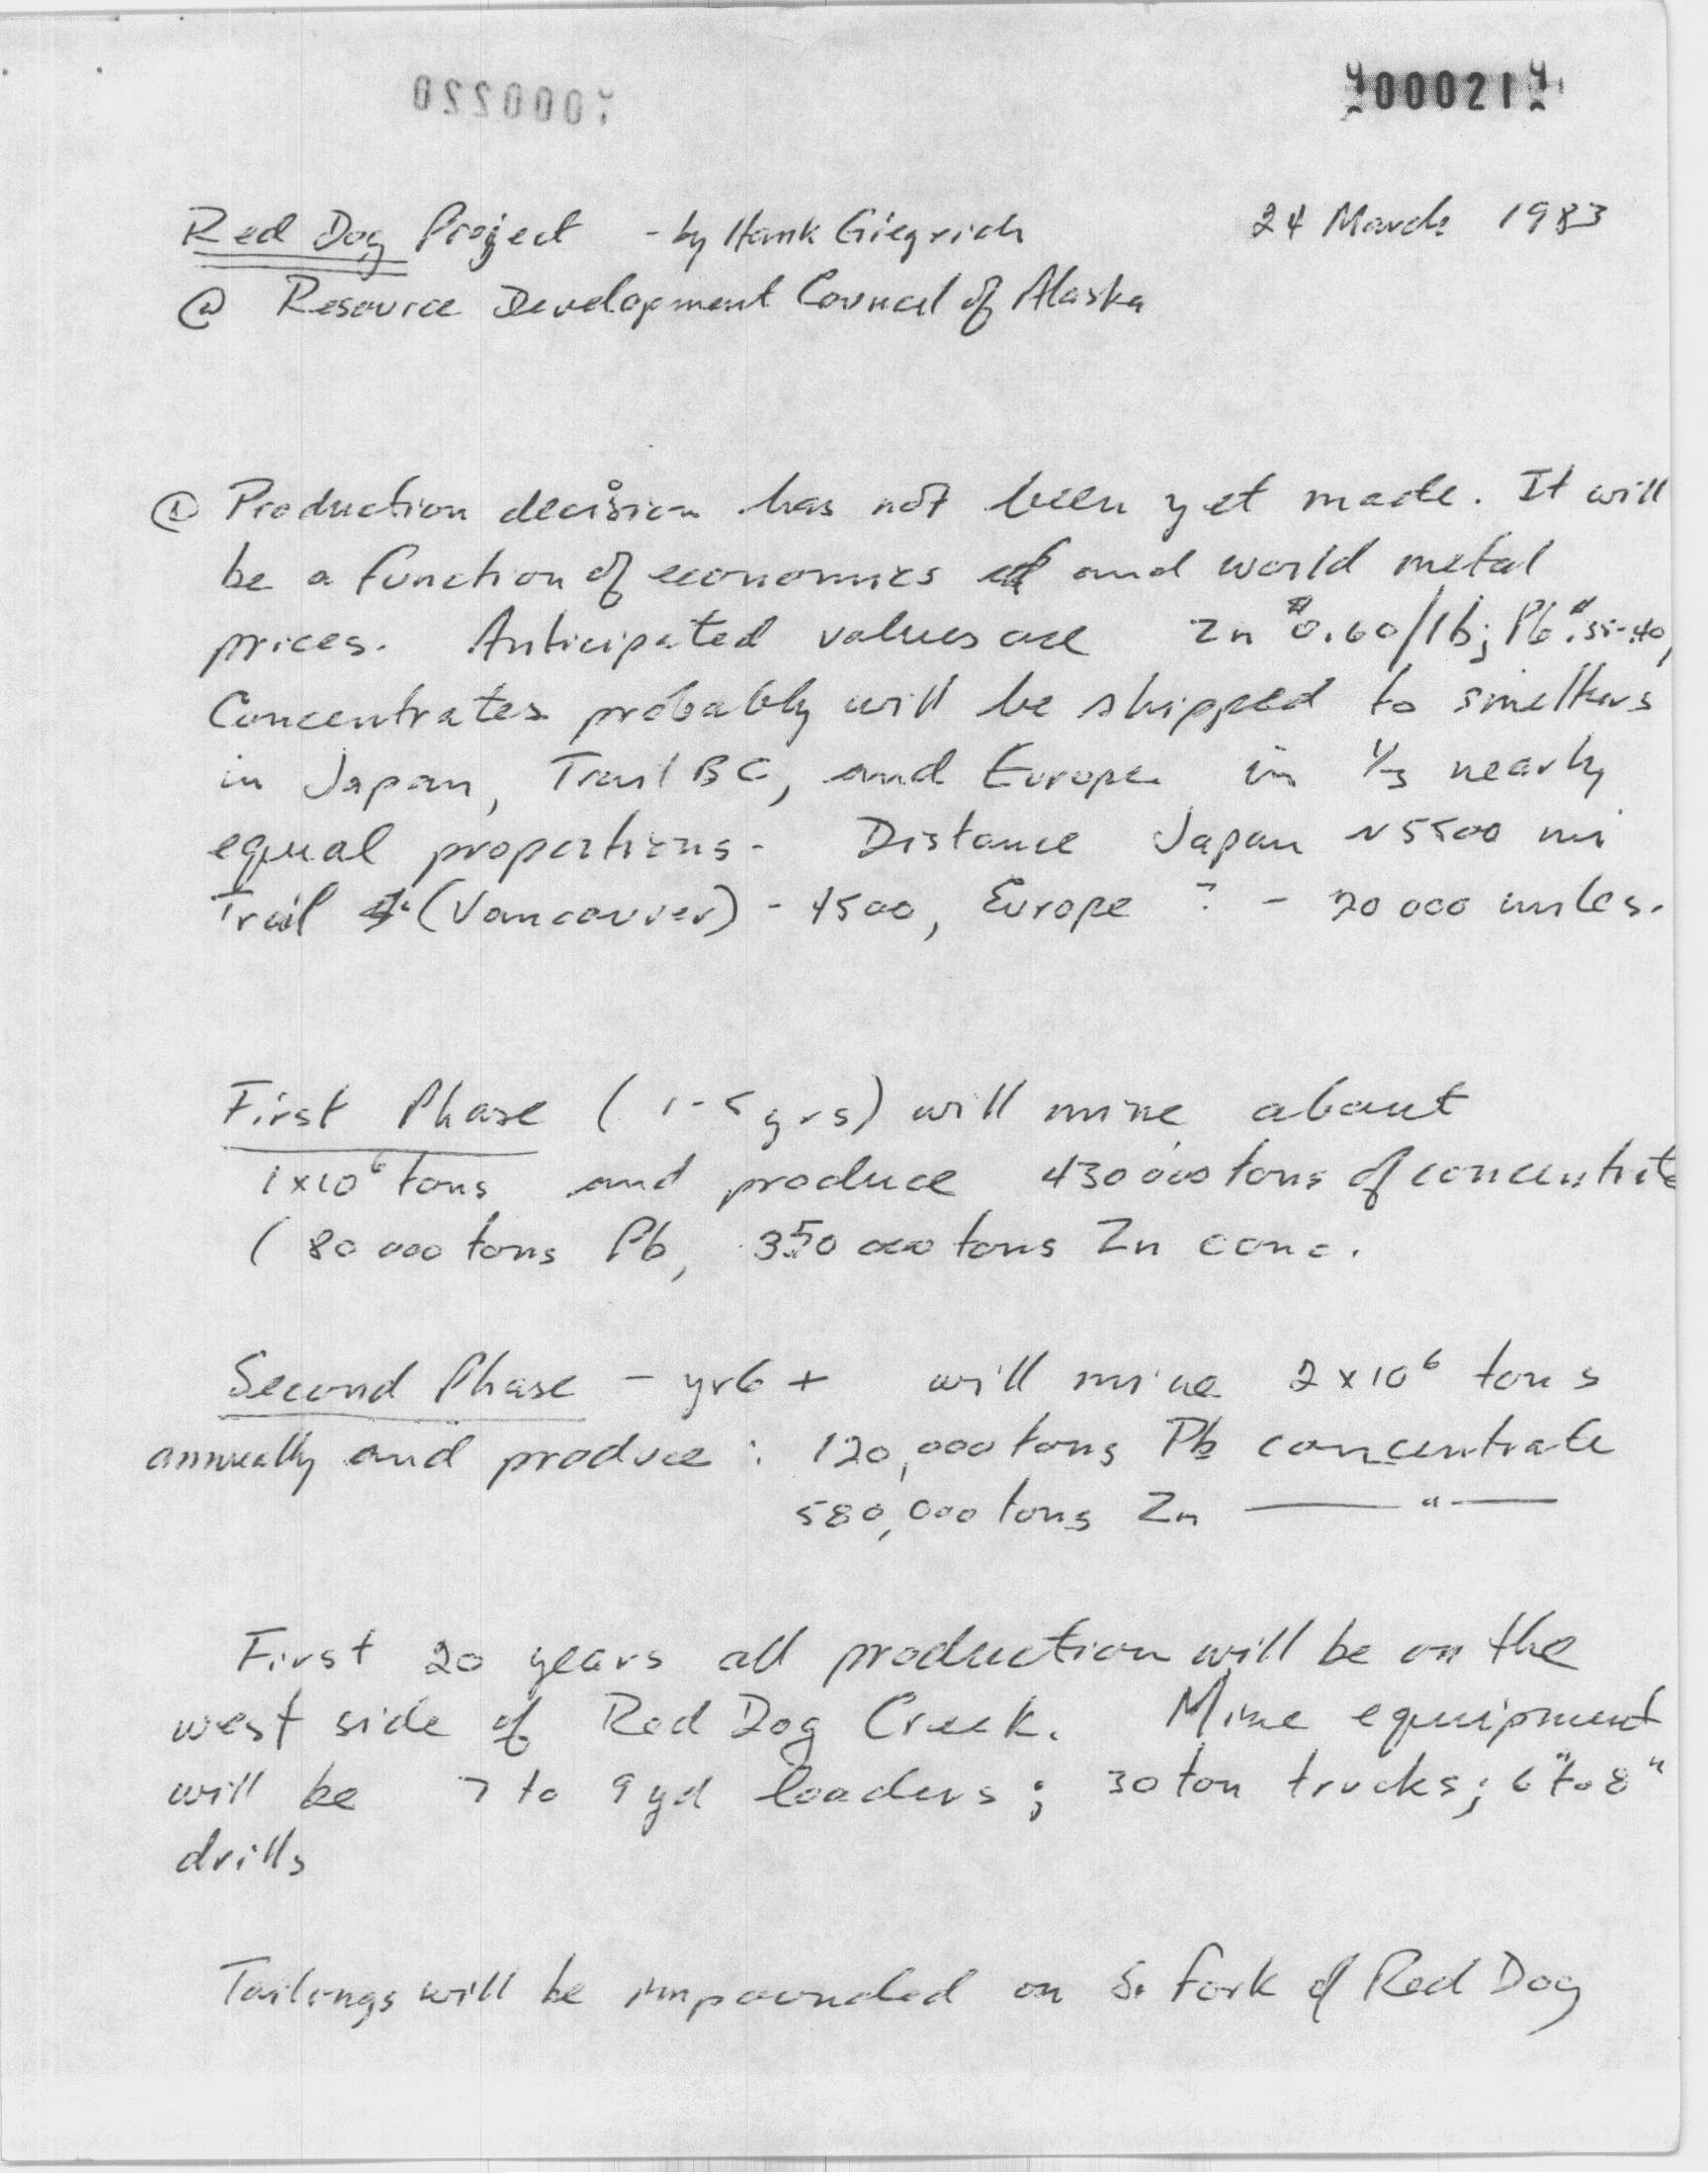 000021
Red Dog Project - by Hank Giegrich 24 March 1983
@ Resource Development Council of Alaska
① Production decision has not been yet made. It will
be a function of economics and world metal
prices. Anticipated values are Zn $0.60/lb; Pb $.35-.40,
Concentrates probably will be shipped to smelters
in Japan, Trail BC, and Europe in 1/3 nearly
equal proportions. Distance Japan ~5500 mi
Trail (Vancouver) - 4500, Europe ? - 20 000 miles.
First Phase (1-5 yrs) will mine about
1x10⁶ tons and produce 430 000 tons of concentrate
(80 000 tons Pb, 350 000 tons Zn conc.
Second Phase - yr 6 + will mine 2 x 10⁶ tons
annually and produce : 120,000 tons Pb concentrate
580,000 tons Zn —— " ——
First 20 years all production will be on the
west side of Red Dog Creek. Mine equipment
will be 7 to 9 yd loaders; 30 ton trucks; 6" to 8"
drills
Tailings will be impounded on S. Fork of Red Dog